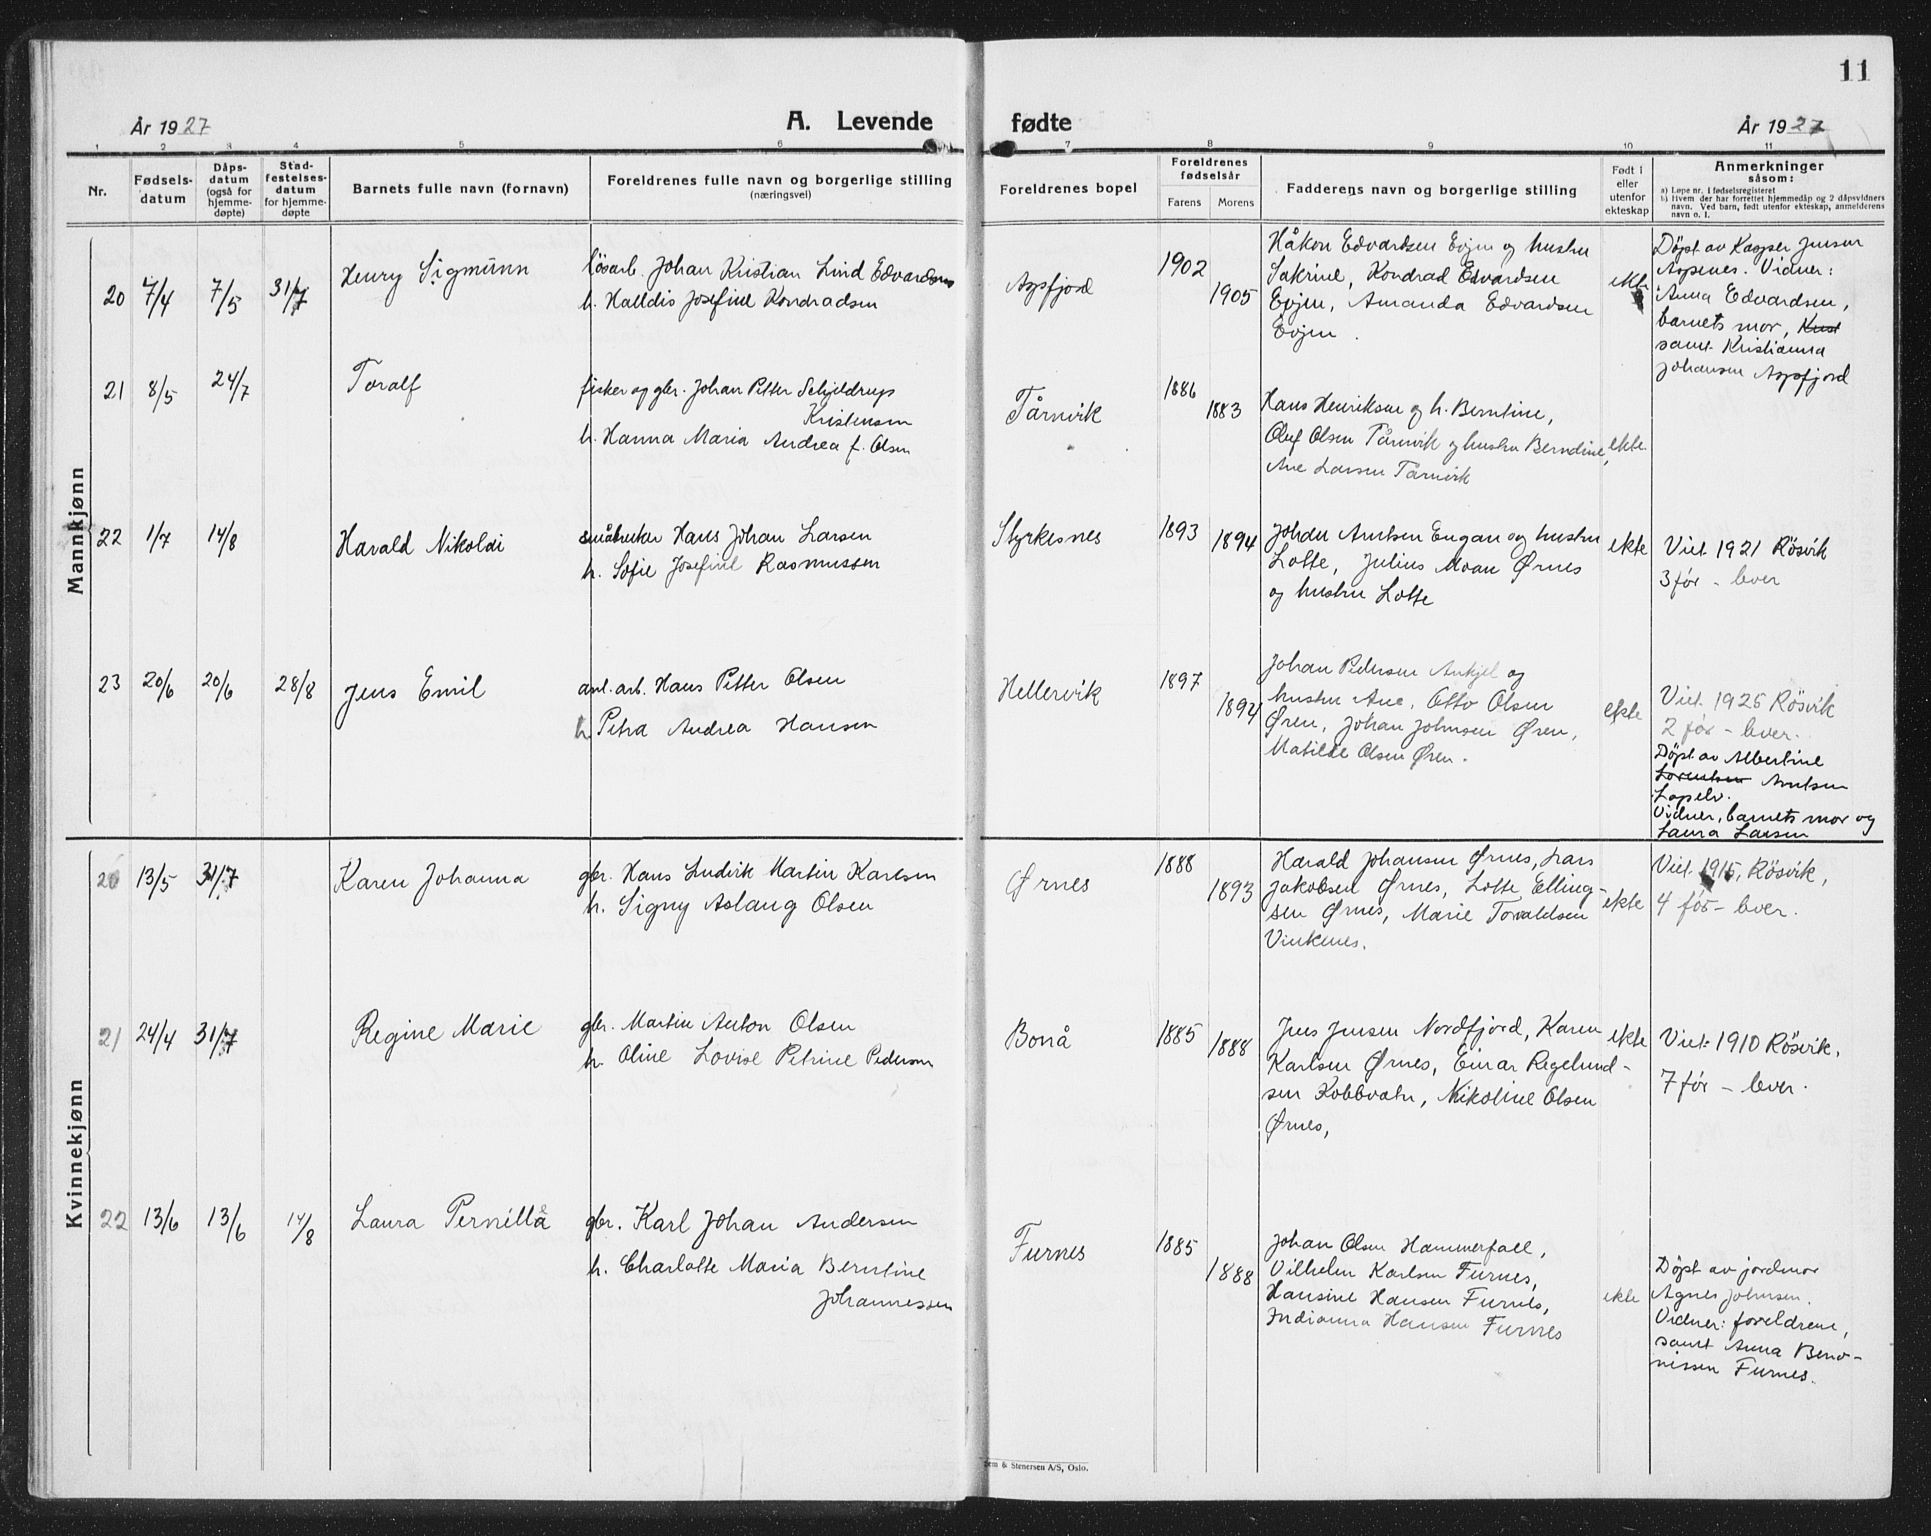 11
År 1927
A. Levende
fødte
År 1927
1 2 3 4 5 6 7 8 9 10 11
Nr.
Fødsels-
datum
Dåps-
datum
(også for
hjemme-
døpte)
Stad-
festelses-
datum
for hjemme-
døpte
Barnets fulle navn (fornavn)
Foreldrenes fulle navn og borgerlige stilling
(næringsvei)
Foreldrenes bopel
Foreldrenes
fødselsår
Farens Morens
Fadderens navn og borgerlige stilling
Født i
eller
utenfor
ekteskap
Anmerkninger
såsom:
a) Løpe nr. i fødselsregisteret
b) Hvem der har forrettet hjemmedåp og 2 dåpsvidners
navn. Ved barn, født utenfor ekteskap, anmelderens
navn o. l.
Mannkjønn
20 7/4 7/5 31/7
Henry Sigmunn
løsarb. Johan Kristian Lind Edvardsen
h. Halldis Josefine Kondradsen
1902
1905
Håkon Edvardsen Evjen og hustru
Sakrine, Kondrad Edvardsen
Evjen, Amanda Edvardsen
Evjen.
ekte
Døpt av Kasper Jensen
Vidner:
Anna Edvardsen,
barnets mor,
samt Kristianna
Johansen
21 8/5 24/7
Toralf
fisker og gbr. Johan Petter Schjeldrup
Kristensen
h. Hanna Maria Andrea f. Olsen
Tårnvik
1886
1883
Hans Henriksen og h. Berntine,
Oluf Olsen Tårnvik og hustru Berndine,
Ane Larsen Tårnvik
ekte
22 1/7 14/8
Harald Nikolai
småbruker Hans Johan Larsen
h. Sofie Josefine Rasmussen
Styrkesnes
1893
1894
Johan Arntsen Engan og hustru
Lotte, Julius Moan Ørnes
og hustru Lotte
ekte
Viet 1921 Røsvik
3 før - lever
23 20/6 20/6 28/8
Jens Emil
anl. arb. Hans Petter Olsen
h. Petra Andrea Hansen
Hellervik
1897
1894
Johan Pedersen Ankjel og
hustru Ane, Otto Olsen
Øren, Johan Johnsen Øren,
Matilde Olsen Øren.
ekte
Viet 1925 Røsvik
2 før - lever.
Døpt av Albertine
Lorentsen Arntsen
Lapelv.
Vidner, barnets mor og
Laura Larsen
Kvinnekjønn
20 13/5 31/7
Karen Johanna
gbr. Hans Ludvik Martin Karlsen
h. Signy Aslaug Olsen
Ørnes
1888
1893
Harald Johansen Ørnes, Lars
Jakobsen Ørnes, Lotte Elling-
sen Ørnes, Marie Torvaldsen
Vinkenes.
ekte
Viet 1915, Røsvik,
4 før - lever.
21 24/4 31/7
Regine Marie
gbr. Martin Anton Olsen
h. Oline Lovise Petrine Pedersen
Bonå
1885
1888
Jens Jensen Nordfjord, Karen
Karlsen Ørnes, Einar Regelund-
sen Kobbvatn, Nikoline Olsen
Ørnes,
ekte
Viet 1910 Røsvik.
7 før - lever.
22 13/6 13/6 14/8
Laura Pernilla
gbr. Karl Johan Andersen
h. Charlotte Maria Berntine
Johannessen
Furnes
1885
1888
Johan Olsen Hammerfall,
Vilhelm Karlsen Furnes,
Hansine Hansen Furnes,
Indianna Hansen Furnes
ekte
Døpt av jordmor
Agnes Johnsen.
Vidner: foreldrene,
samt Anna Beno-
nissen Furnes.
& Stenersen A/S, Oslo.